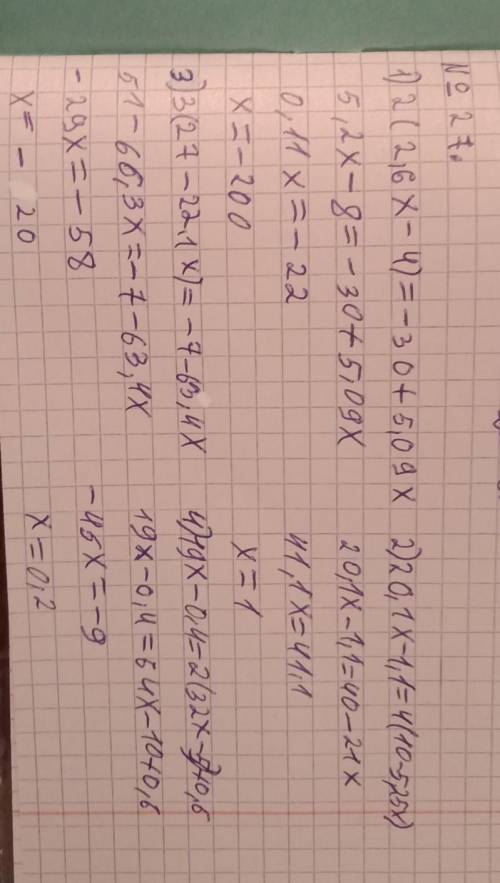 № 27.
1) 2(2,6x-4)=-30+5,09x
5,2x-8=-30+5,09x
0,11x=-22
x=-200
2) 20,1x-1,1=4(10-5,25x)
20,1x-1,1=40-21x
41,1x=41,1
x=1
3) 3(27-22,1x)=-7-63,4x
51-66,3x=-7-63,4x
-29x=-58
x=-20
4) 19x-0,4=2(32x-5)+0,6
19x-0,4=64x-10+0,6
-45x=-9
x=0,2